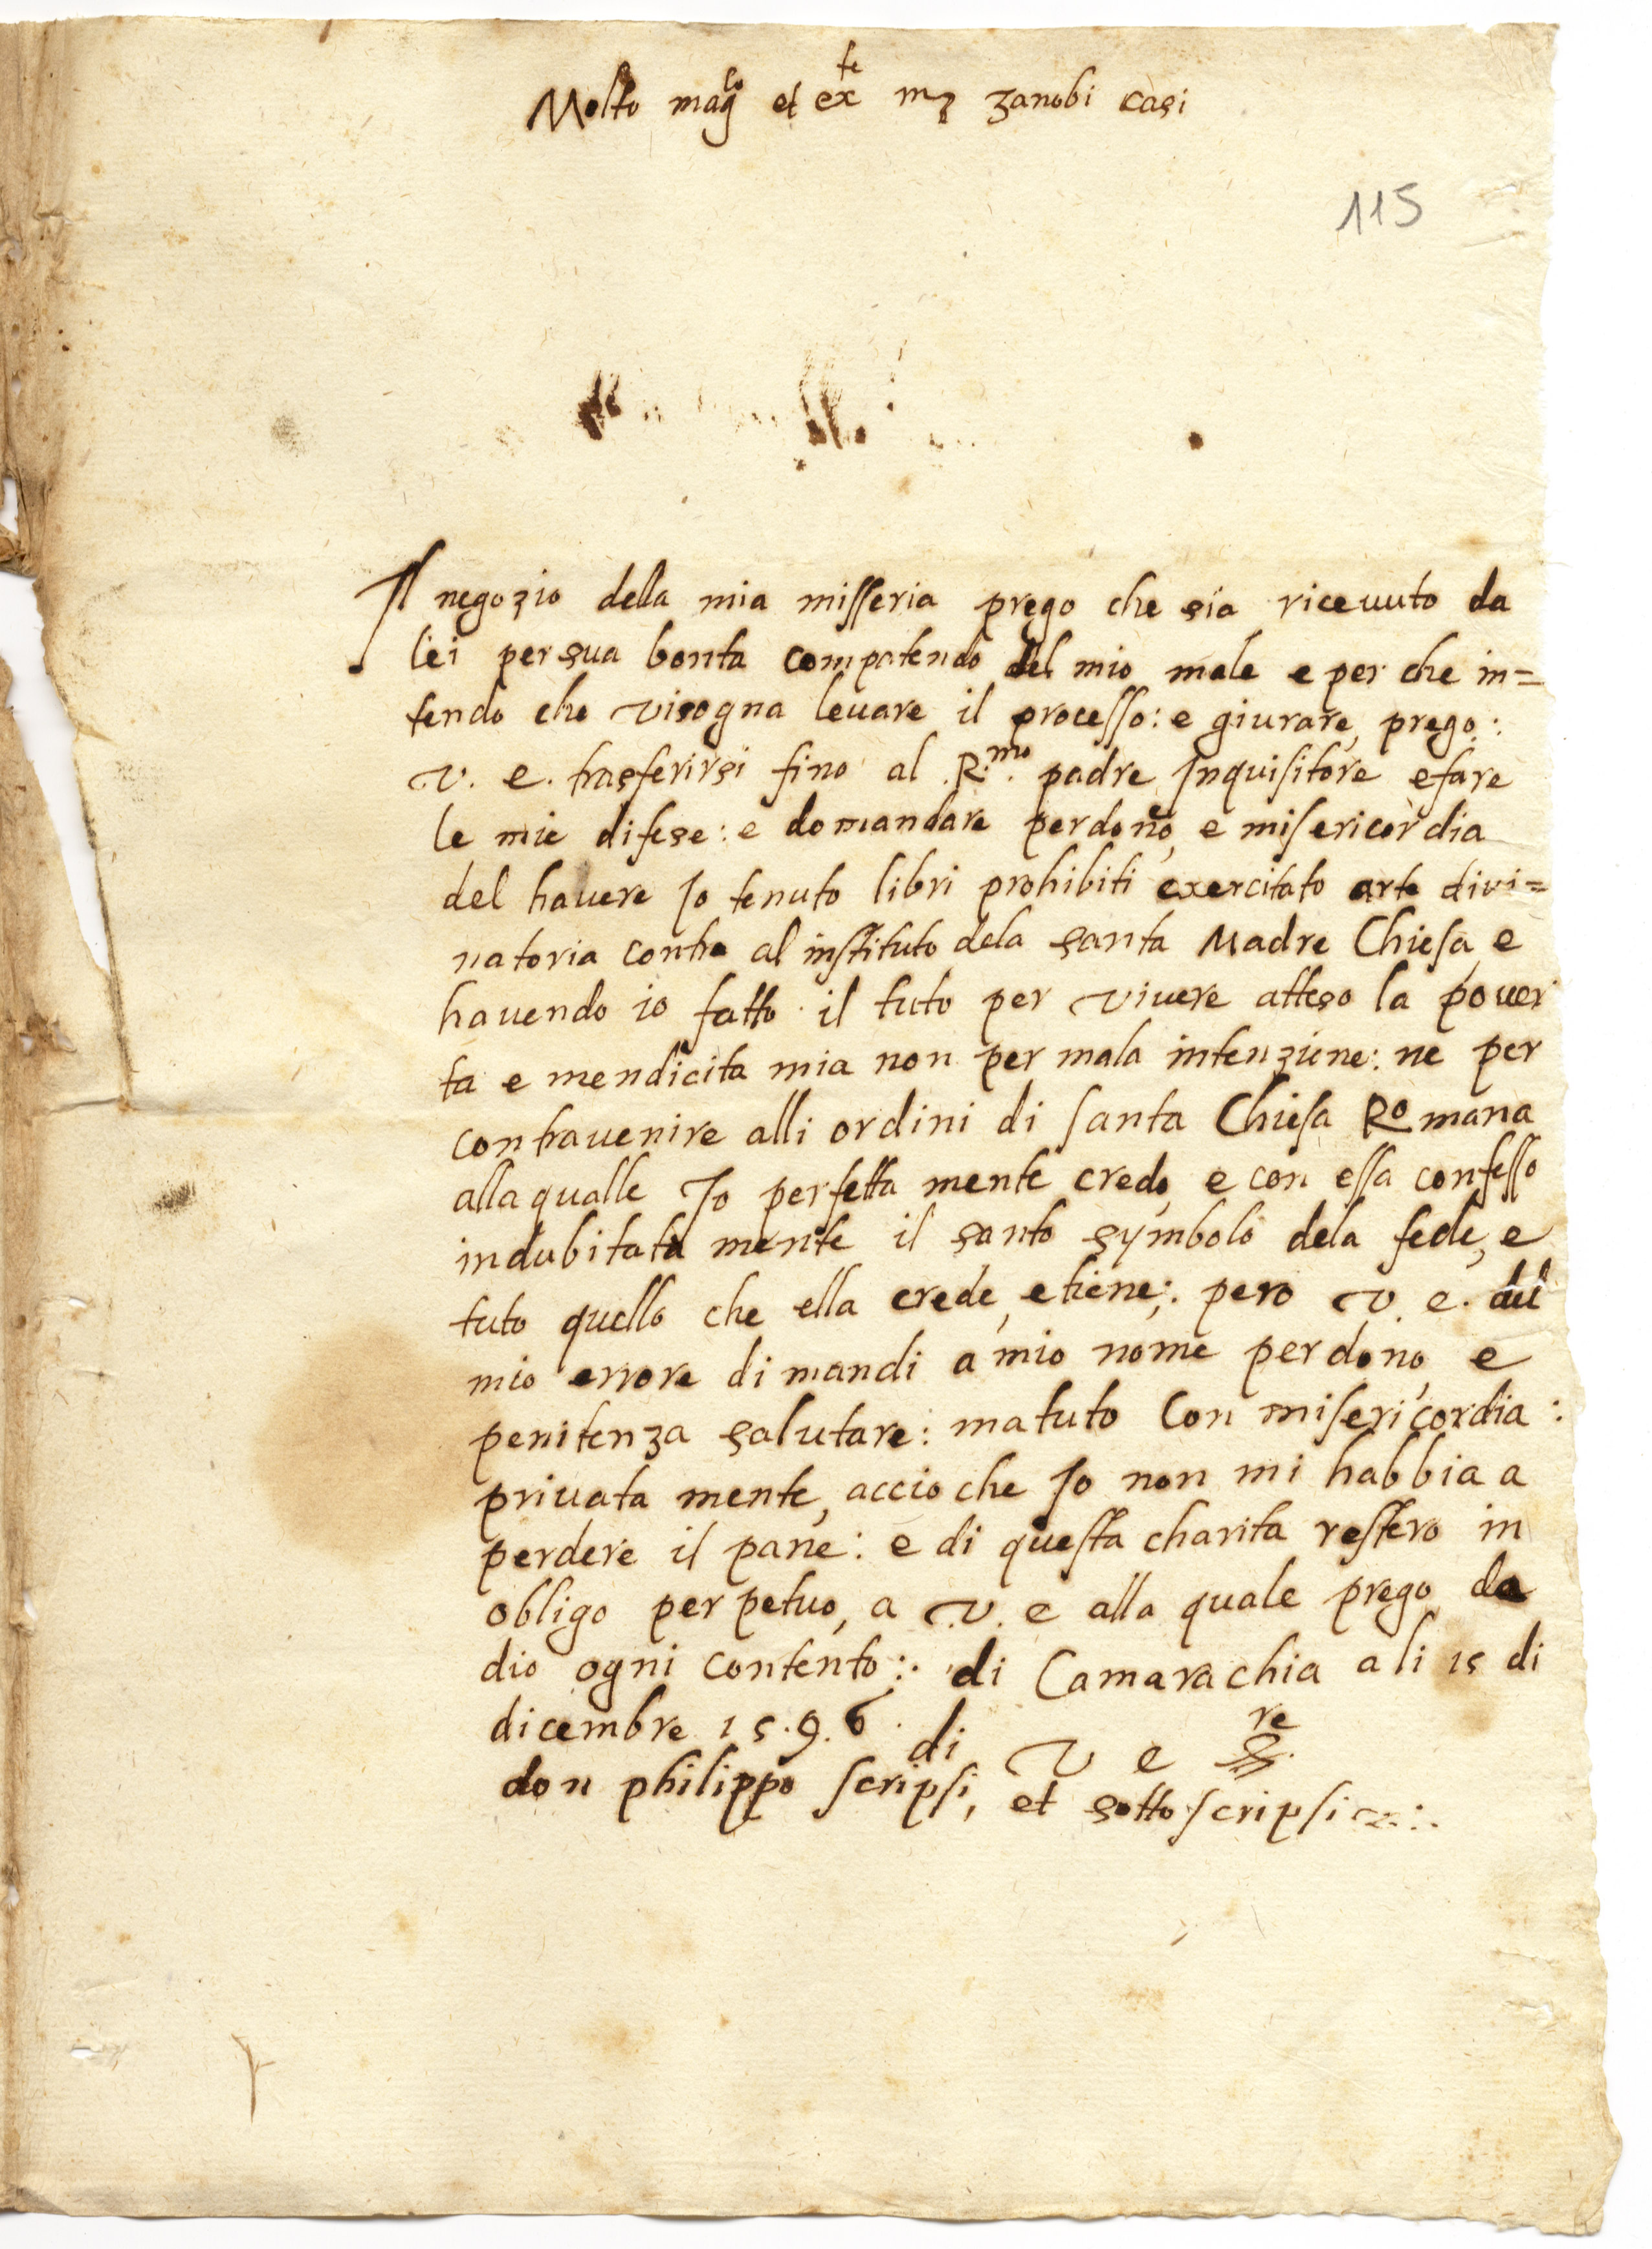 Molto mag.co et ex.te m.r zanobi casi
115
Il negozio della mia misseria prego che sia riceuuto da
lei per sua bonta compatendo del mio male e per che in=
tendo che visogna leuare il processo: e giurare, prego:
v. e. trasferirsi fino al R.mo padre Inquisitore e fare
le mie difese: e domandare perdono, e misericordia
del hauere Io tenuto libri prohibiti exercitato arte divi=
natoria contra al instituto dela santa Madre Chiesa, e
hauendo io fatto il tuto per viuere atteso la pouer
ta e mendicita mia non per mala intenzione: ne per
contrauenire alli ordini di santa Chiesa Romana
alla qualle Io perfetta mente credo, e con essa confesso
indubitata mente il santo symbolo dela fede, e
tuto quello che ella crede, e tiene;. pero v. e. del
mio errore di mandi a mio nome perdono, e
penitenza salutare: ma tuto con misericordia:
priuata mente, accio che Io non mi habbia a
perdere il pane: e di questa charita restero in
obligo per petuo, a v. e alla quale prego da
dio ogni contento:. di Camarachia a li 15 di
dicembre 15.9.6.
di v e s.re
don philippo scripsi, et sotto scripsi